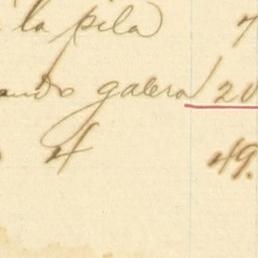 la pila 7
galera 20
4 49.